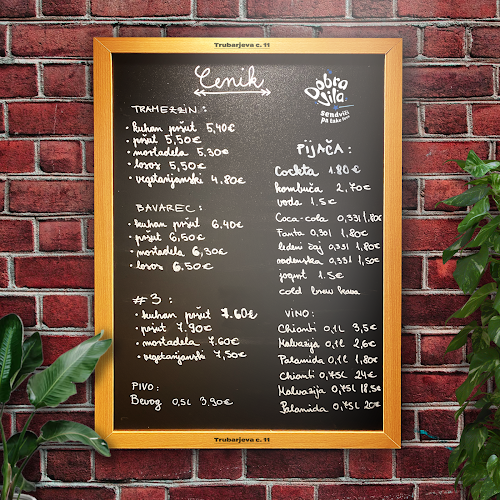 Trubarjeva c. 11
Cenik
Dobra
Vila
sendviči
TRAMEZZIN :
• kuhan pršut 5,40€
• pršut 5,50€
• mortadela 5,30€
• losos 5,50€
• vegetarijanski 4.80€
BAVAREC :
• kuhan pršut 6.40€
• pršut 6,50€
• mortadela 6,30€
• losos 6.50€
#3 :
• kuhan pršut 7.60€
• pršut 7.90€
• mortadela 7.60€
• vegetarijanski 7,50€
PIVO:
Bevog 0,5L 3,90€
PIJAČA :
Cockta 1.80€
kombuča 2,70€
voda 1.5€
Coca-cola 0,33l 1.80€
Fanta 0,33l 1.80€
ledeni čaj 0,33l 1.80€
radenska 0,33l 1,50€
jogurt 1.5€
cold brew kava
VINO:
Chianti 0,1L 3,5€
Malvazija 0,1L 2,6€
Palamida 0,1L 1,80€
Chianti 0,75L 24€
Malvazija 0,75L 18.5€
Palamida 0,75L 20€
Trubarjeva c. 11